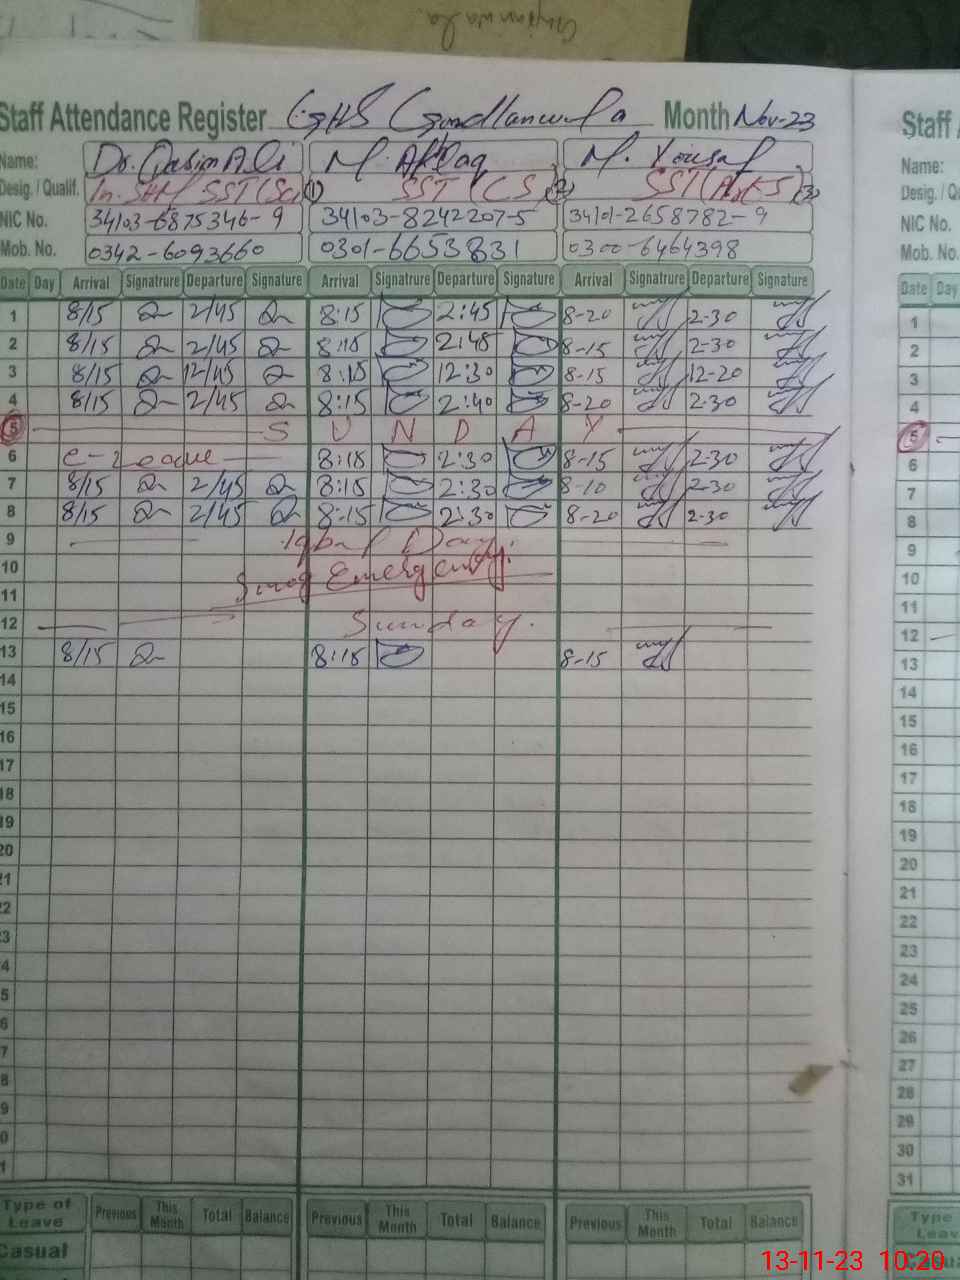 Staff Attendance Register GHS Gondlanwala Month Nov-23
Name: Dr. Qasim Ali M. Afaq M. Yousaf
Desig. / Qualif. SST (Sc) (1) SST (CS) (2) SST (3)
NIC No. 34103-6875346-9 34103-8242207-5 34101-2658782-9
Mob. No. 0342-6093660 0301-6653831 0300-6464398
Date Day Arrival Signatrure Departure Signature Arrival Signatrure Departure Signature Arrival Signatrure Departure Signature
1 8/15 2/45 8:15 2:45 8-20 2-30
2 8/15 2/45 8:15 2:45 8-15 2-30
3 8/15 12/45 8:15 12:30 8-15 12-20
4 8/15 2/45 8:15 2:40 8-20 2-30
5 S U N D A Y
6 C-Leave 8:15 2:30 8-15 2-30
7 8/15 2/45 8:15 2:30 8-10 2-30
8 8/15 2/45 8:15 2:30 8-20 2-30
9 Iqbal Day.
10 Smog Emergency.
11
12 Sunday.
13 8/15 8:15 8-15
14
15
16
17
18
19
20
21
22
23
24
25
26
27
28
29
30
31
Type of Leave Previous This Month Total Balance Previous This Month Total Balance Previous This Month Total Balance
Casual
Staff
Name:
Desig. /
NIC No.
Mob. No.
Date Day
1
2
3
4
5
6
7
8
9
10
11
12
13
14
15
16
17
18
19
20
21
22
23
24
25
26
27
28
29
30
31
Type
Leav
13-11-23 10:20